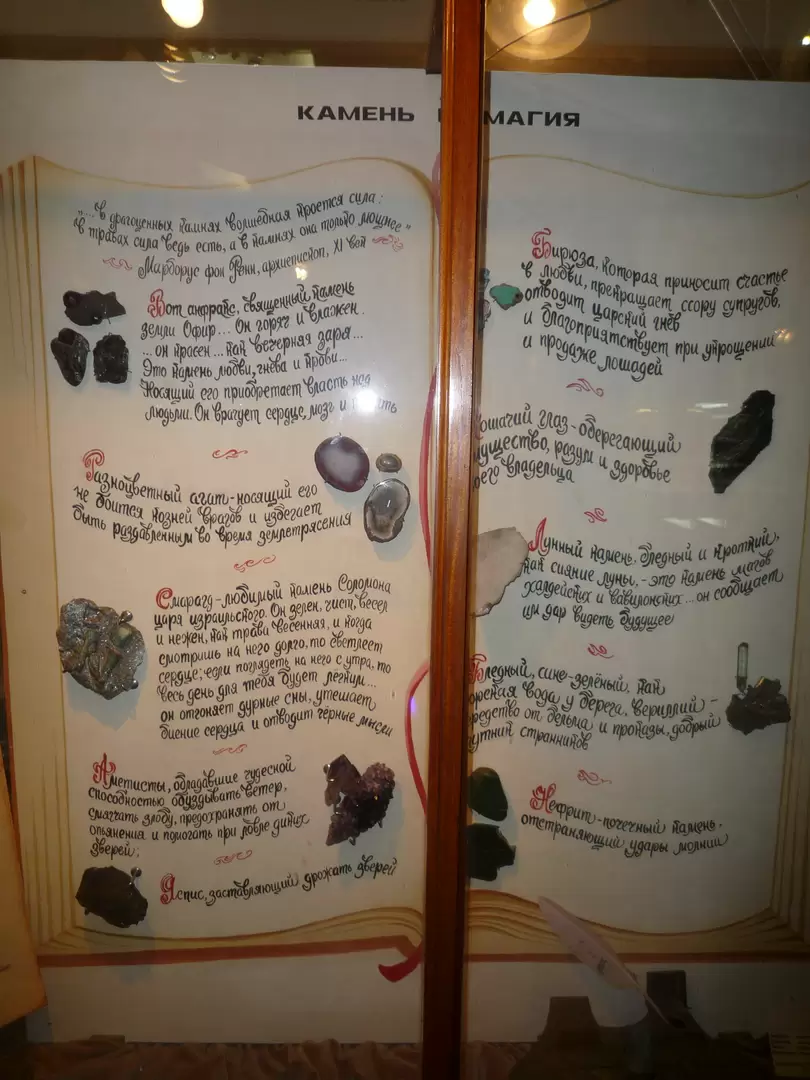 КАМЕНЬ МАГИЯ
"...в драгоценных камнях волшебная кроется сила:
в травах сила ведь есть, а в камнях она только мощнее"
Марборус фон Ренн, архиепископ, XI век
Вот анфракс, священный камень
земли Офир... Он горяч и влажен.
... он красен... как вечерняя заря...
Это камень любви, гнева и крови...
Носящий его приобретает власть над
людьми. Он врачует сердце, мозг и
Разноцветный агат-носящий его
не боится козней врагов и избегает
быть раздавленным во время землетрясения
Смарагд-любимый камень Соломона
царя израильского. Он зелен, чист, весел
и нежен, как трава весенняя, и когда
смотришь на него долго, то светлеет
сердце; если поглядеть на него с утра, то
весь день для тебя будет легким...
он отгоняет дурные сны, утешает
биение сердца и отводит чёрные мысли
Аметисты, обладавшие чудесной
способностью обуздывать ветер,
смягчать злобу, предохранять от
опьянения и помогать при ловле диких
зверей;
Яспис, заставляющий дрожать зверей
Бирюза, которая приносит счастье
в любви, прекращает ссору супругов,
отводит царский гнев
и благоприятствует при укрощении
и продаже лошадей
кошачий глаз-оберегающий
мущество, разум и здоровье
оего владельца
Лунный камень, бледный и кроткий,
как сияние луны,-это камень магов
халдейских и вавилонских... он сообщает
им дар видеть будущее
Бледный, сине-зелёный, как
орская вода у берега, вериллий -
редство от бельма и проказы, добрый
утник странников
Нефрит-почечный камень.
отстраняющий удары молнии